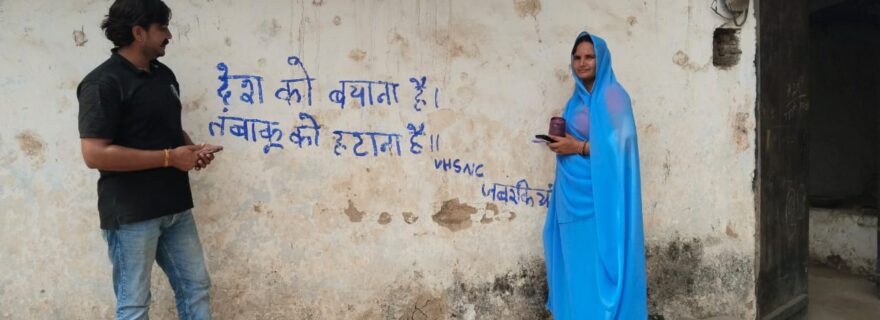 देश को बचाना है।
तंबाकू को हटाना है॥
VHSNC